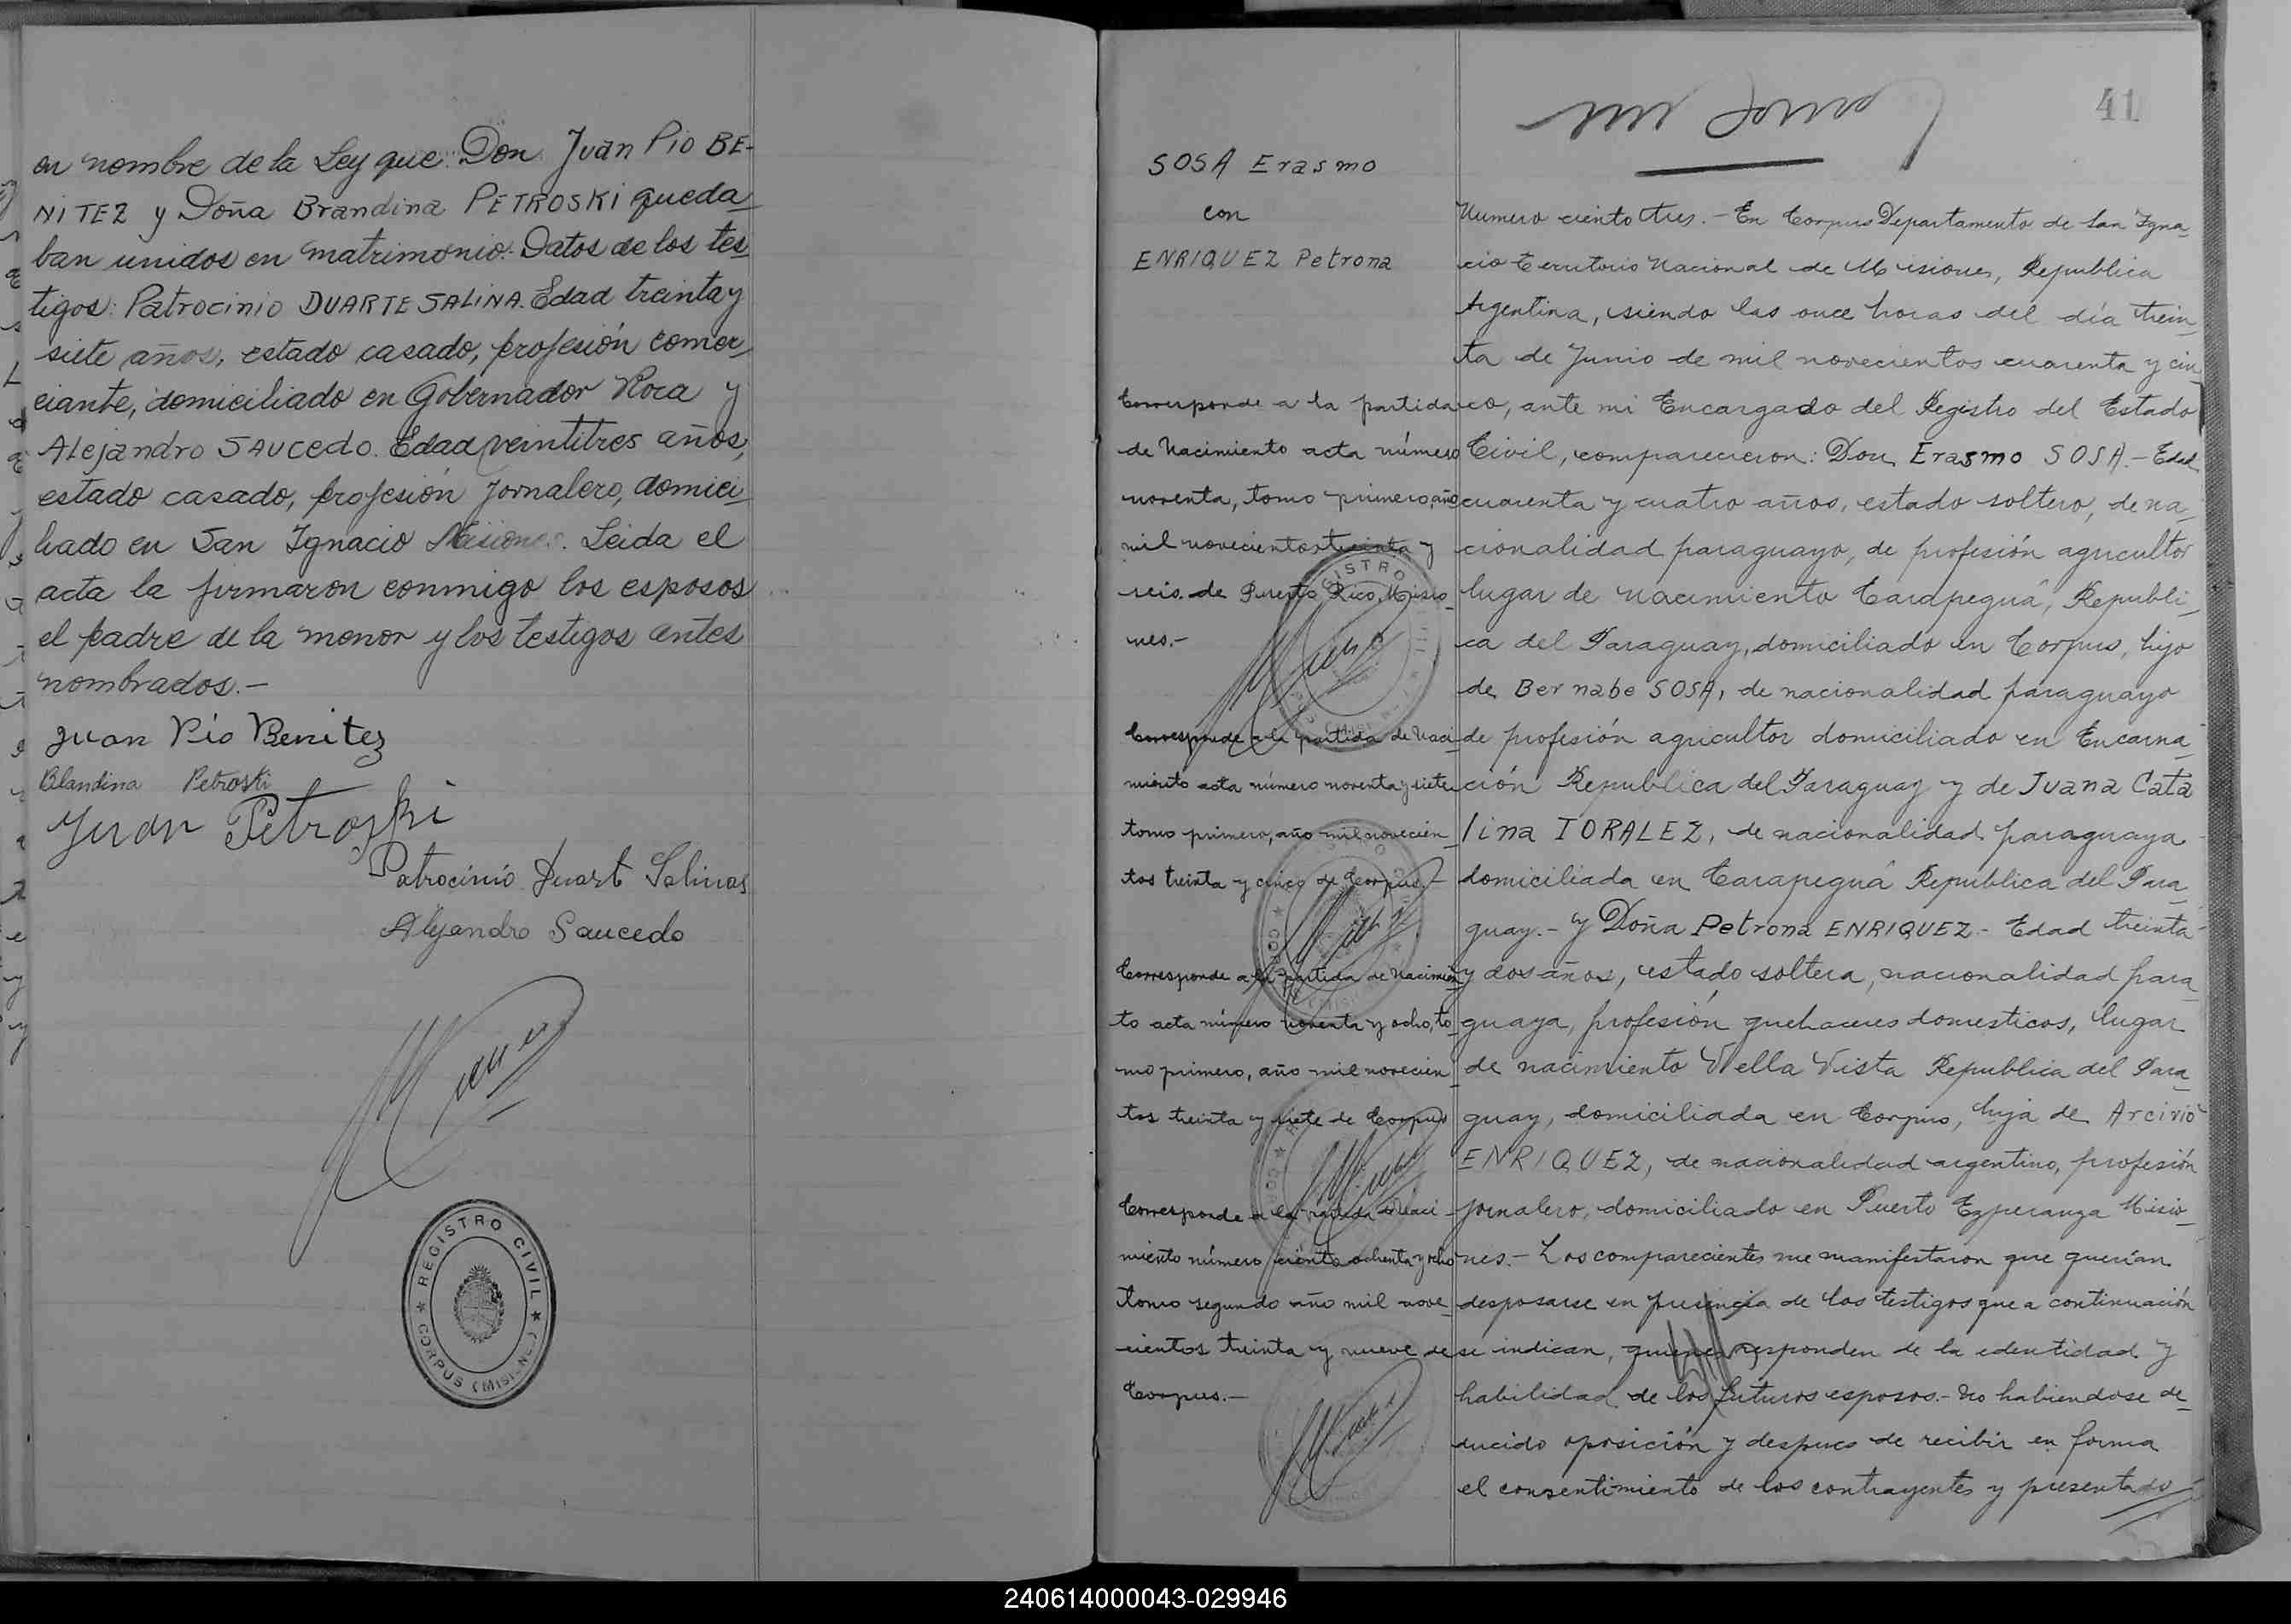 en nombre de la Ley que: Don Juan Pio BE-
NITEZ y Doña Brandina PETROSKI queda
ban unidos en matrimonio.- Datos de los tes
tigos: Patrocinio DUARTE SALINA. Edad treinta y
siete años, estado casado, profesión comer
ciante, domiciliado en Gobernador Roca y
Alejandro SAUCEDO. Edad veintitres años,
estado casado, profesión Jornalero, domici
liado en San Ignacio Misiones. Leida el
acta la firmaron conmigo los esposos
el padre de la menor y los testigos antes
nombrados.-
Juan Pio Benitez
Blandina Petroski
Juan Petroski
Patrocinio Duart Salinas
Alejandro Saucedo
REGISTRO CIVIL
CORPUS (MISIONES)
41
SOSA Erasmo
con
ENRIQUEZ Petrona
Corresponde a la partida
de Nacimiento acta número
noventa, tomo primero, año
mil novecientos treinta y
seis de Puerto Rico, Misio
nes.-
Corresponde a la partida de Naci
miento acta número noventa y siete
tomo primero, año mil novecien
tos treinta y cinco de Corpus.-
Corresponde a la partida de Nacimien
to acta número noventa y ocho, to
mo primero, año mil novecien
tos treinta y siete de Corpus
Corresponde a la partida de Naci
miento número ciento ochenta y ocho
tomo segundo año mil nove
cientos treinta y nueve de
Corpus.-
Numero ciento tres.- En Corpus Departamento de San Igna
cio Territorio Nacional de Misiones, Republica
Argentina, siendo las once horas del día trein
ta de Junio de mil novecientos cuarenta y cin
co, ante mi Encargado del Registro del Estado
Civil, comparecieron: Don Erasmo SOSA.- Edad
cuarenta y cuatro años, estado soltero, de na
cionalidad paraguayo, de profesión agricultor
lugar de nacimiento Carapeguá, Republi
ca del Paraguay, domiciliado en Corpus, hijo
de Bernabe SOSA, de nacionalidad paraguayo
de profesión agricultor domiciliado en Encarna
ción Republica del Paraguay y de Juana Cata
lina TORALEZ, de nacionalidad paraguaya
domiciliada en Carapeguá Republica del Para
guay.- y Doña Petrona ENRIQUEZ.- Edad treinta
y dos años, estado soltera, nacionalidad para
guaya, profesión quehaceres domesticos, lugar
de nacimiento Vella Vista Republica del Para
guay, domiciliada en Corpus, hija de Arcivio
ENRIQUEZ, de nacionalidad argentino, profesión
jornalero, domiciliado en Puerto Ezperanza Misio
nes.- Los comparecientes me manifestaron que querían
desposarse en presencia de los testigos que a continuación
se indican, quienes responden de la identidad y
habilidad de los futuros esposos.- No habiendose de
ducido oposición y despues de recibir en forma
el consentimiento de los contrayentes y presentado
240614000043-029946